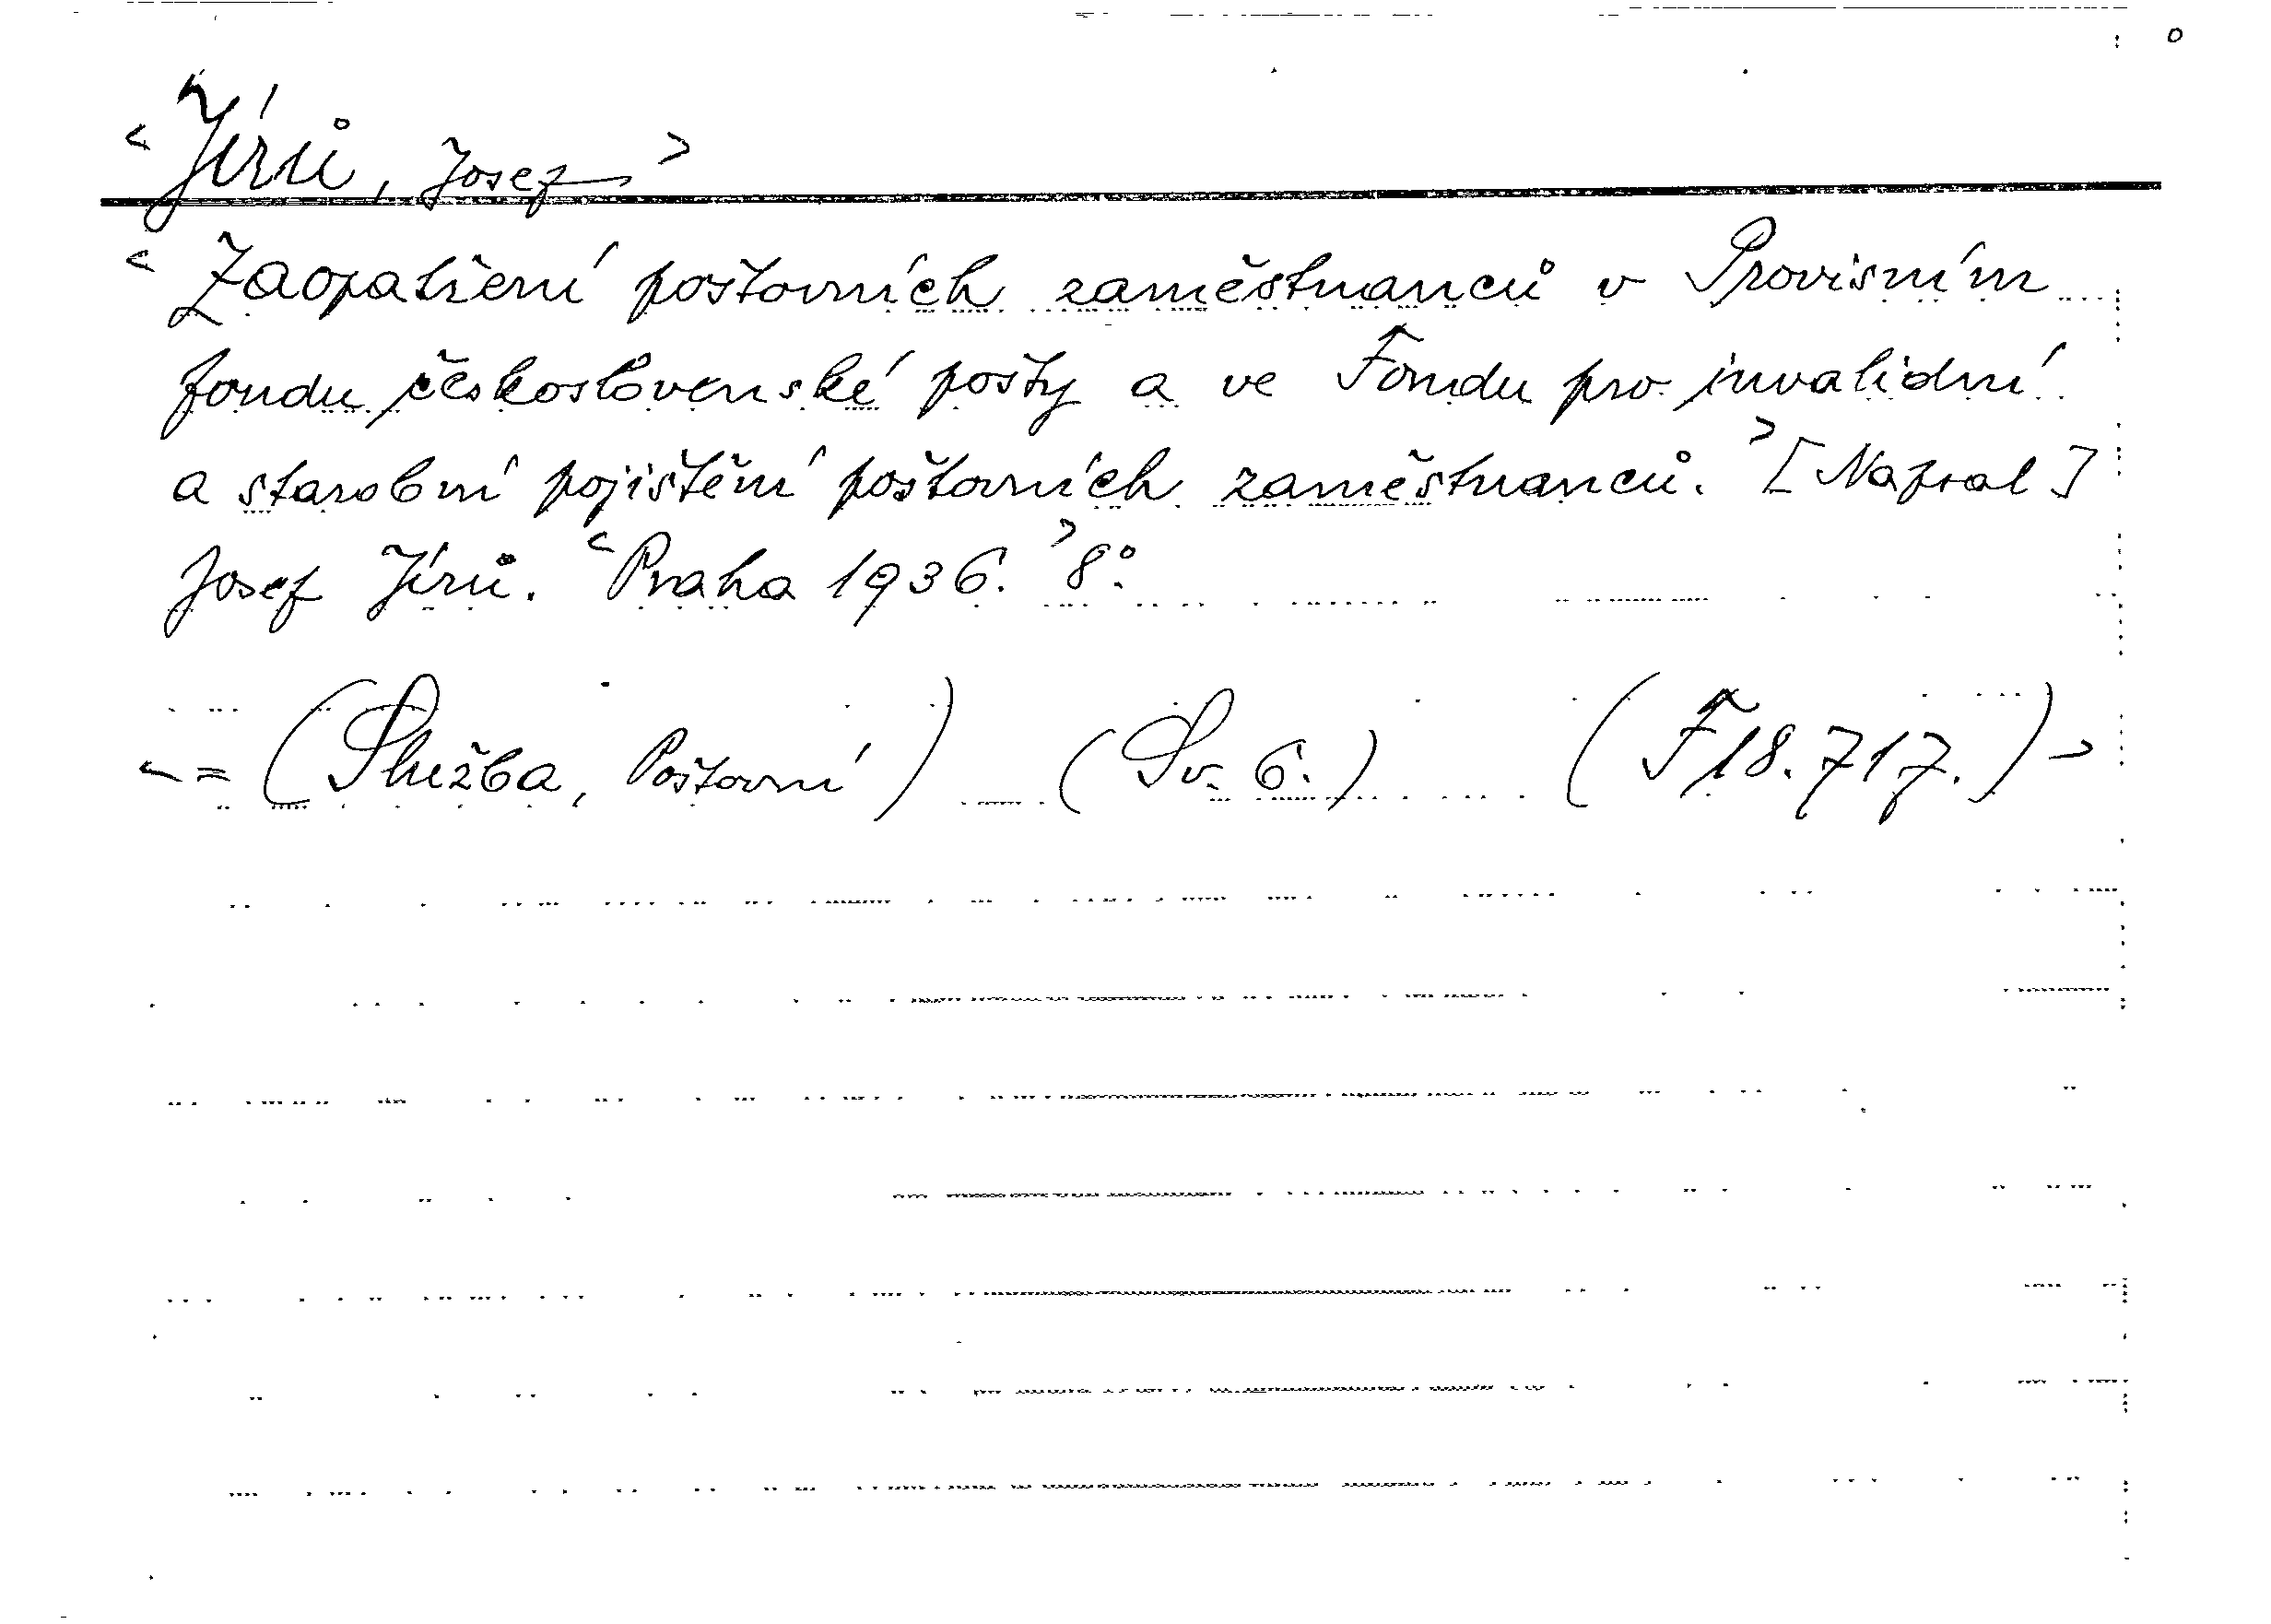 < Jírů, Josef >
< Zaopatření poštovních zaměstnanců v Provisním
fondu československé pošty a ve Fondu pro invalidní
a starobní pojištění poštovních zaměstnanců. > [Napsal]
Josef Jírů. < Praha 1936. > 8°.
< = (Služba, Poštovní) (Sv. 6.) (F 18.717.) >